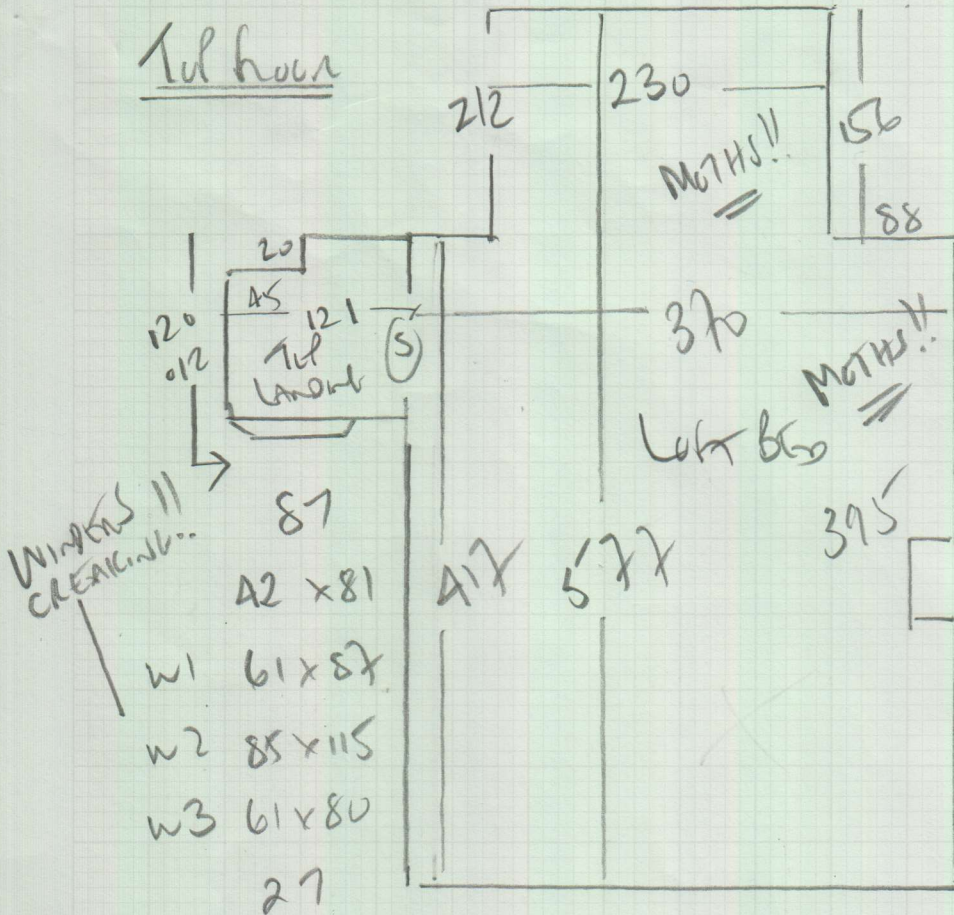 Top floor
212
230
156
MOTHS!!
88
20
45
121
120
.012
TOP
LANDING
S
370
MOTHS!!
LOFT BED
395
WINDERS!!
CREAKING..
87
42 x 81
417
577
W1 61 x 87
W2 85 x 115
W3 61 x 80
27